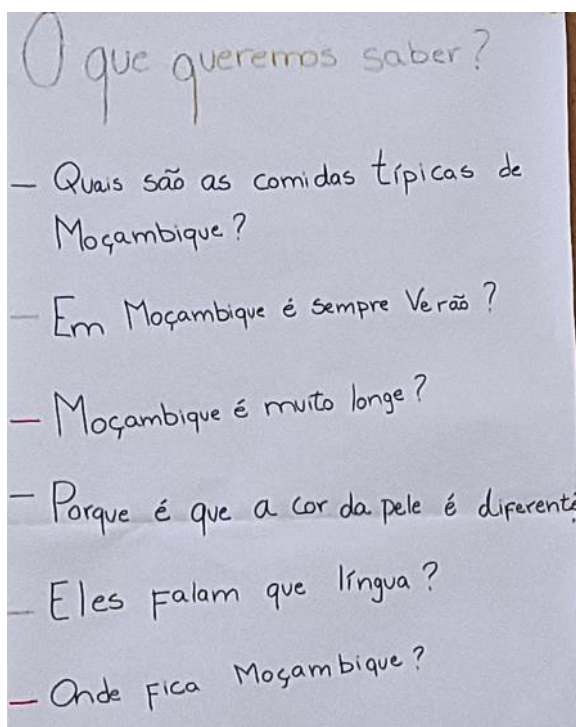 O que queremos saber?
— Quais são as comidas típicas de
Moçambique?
— Em Moçambique é sempre Verão?
— Moçambique é muito longe?
— Porque é que a cor da pele é diferente?
— Eles falam que língua?
— Onde fica Moçambique?